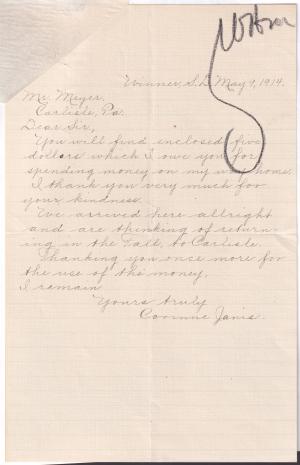 Winner, S.D. May 9, 1914.
Mr. Meyer.
Carlisle, Pa.
Dear Sir,
You will find enclosed five
dollars which I owe you for
spending money on my way home.
I thank you very much for
your kindness.
We arrived here allright
and are thinking of return-
ing in the Fall, to Carlisle.
Thanking you once more for
the use of the money.
I remain
Yours truly
Corinne Janis.